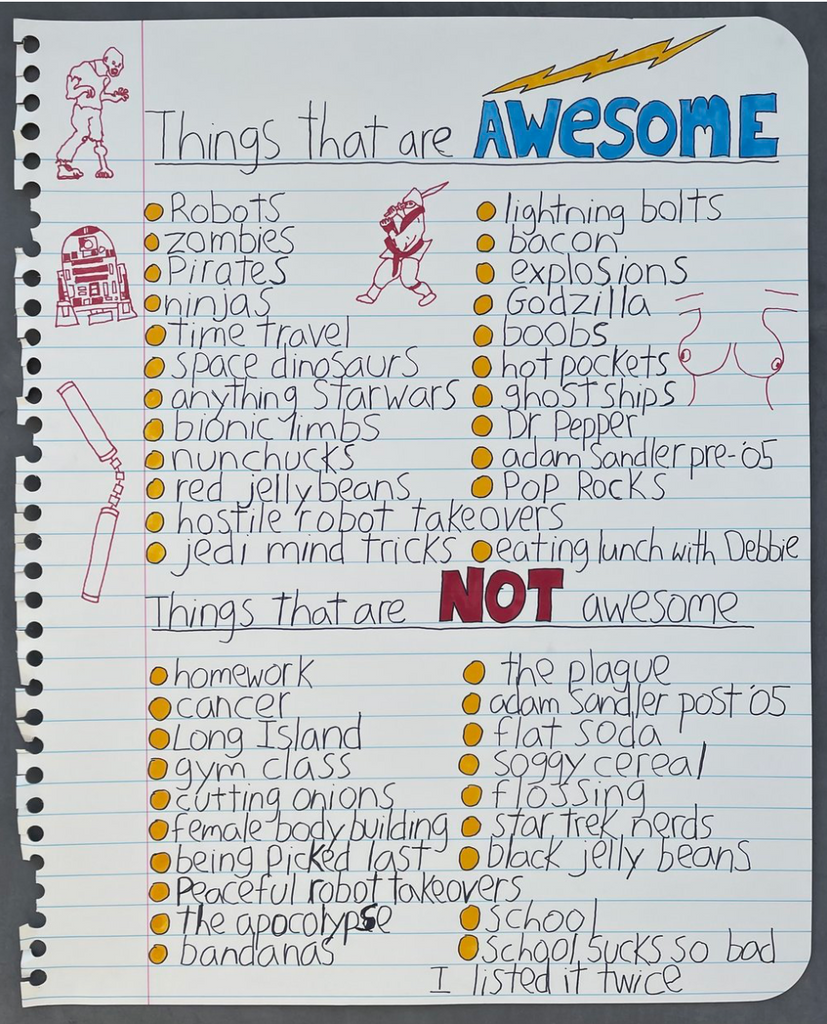 Things that are AWESOME
Robots
zombies
Pirates
ninjas
time travel
space dinosaurs
anything Starwars
bionic limbs
nunchucks
red jellybeans
hostile robot takeovers
jedi mind tricks
lightning bolts
bacon
explosions
Godzilla
boobs
hot pockets
ghost ships
Dr Pepper
adam Sandler pre-'05
Pop Rocks
eating lunch with Debbie
Things that are NOT awesome
homework
cancer
Long Island
gym class
cutting onions
female body building
being picked last
Peaceful robot takeovers
the apocolypse
bandanas
the plague
adam Sandler post '05
flat soda
soggy cereal
flossing
star trek nerds
black jelly beans
school
school sucks so bad
I listed it twice